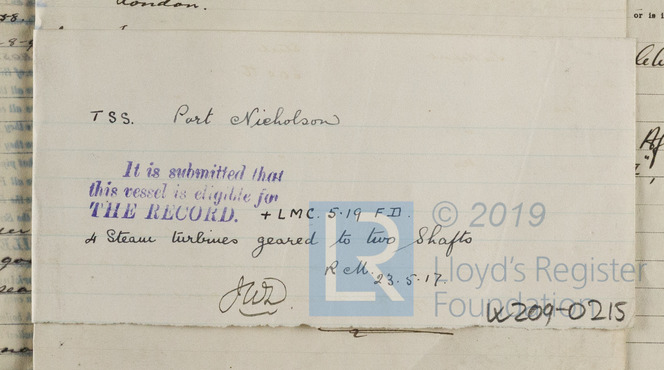 London.
or is i
TSS. Port Nicholson
It is submitted that
this vessel is eligible for
THE RECORD. + LMC. 5.19 F.D.
4 Steam turbines geared to two Shafts
23.5.17.
LR
© 2019
Lloyd's Register
Foundation
W209-0215